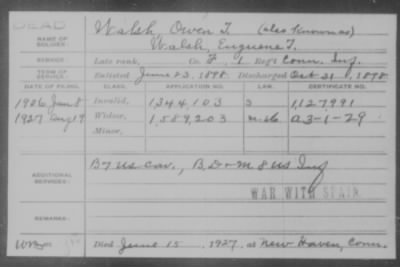 DEAD
NAME OF SOLDIER: Walsh Owen T. (also known as)
Walsh, Euguene T.
SERVICE: Late rank, Co. F, 1 Reg't Conn. Inf.
TERM OF SERVICE: Enlisted June 23, 1898. Discharged Oct 31, 1898
DATE OF FILING. CLASS. APPLICATION NO. LAW. CERTIFICATE NO.
1926 Jan 8 Invalid, 1344,103 1,127,991
1927 Aug 19 Widow, 1,589,203 A-3-1-29
Minor,
ADDITIONAL SERVICES: B 7 us Cav., B, D & M 8 us Inf
WAR WITH SPAIN
REMARKS:
Died June 15, 1927, at New Haven, Conn.